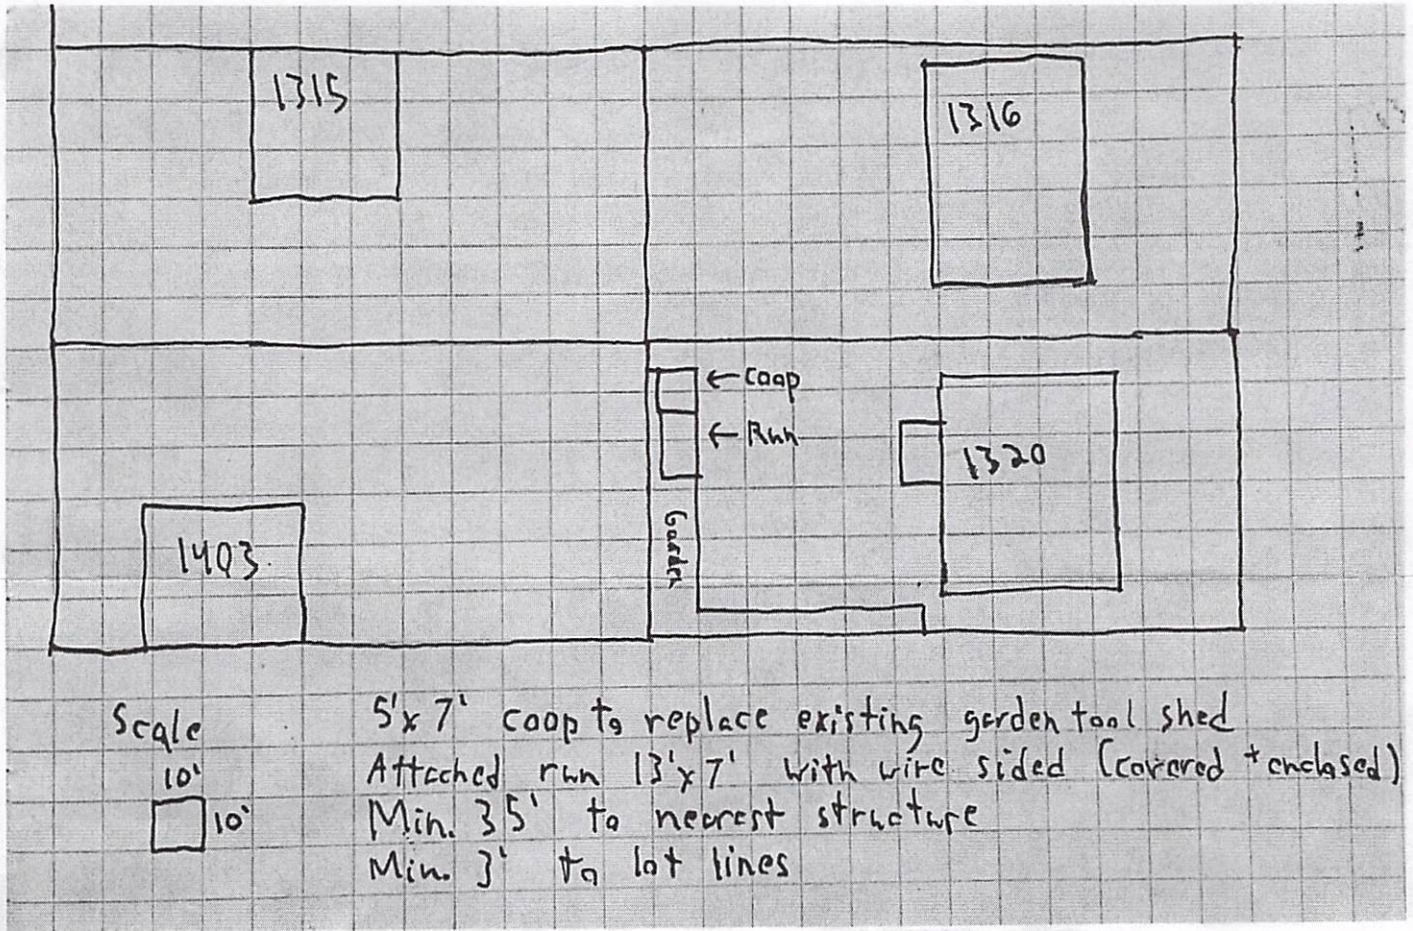 1315
1316
← Coop
← Run
1320
Garden
1403
Scale
10'
10'
5'x 7' coop to replace existing garden tool shed
Attached run 13'x7' with wire sided (covered + enclosed)
Min. 35' to nearest structure
Min. 3' to lot lines